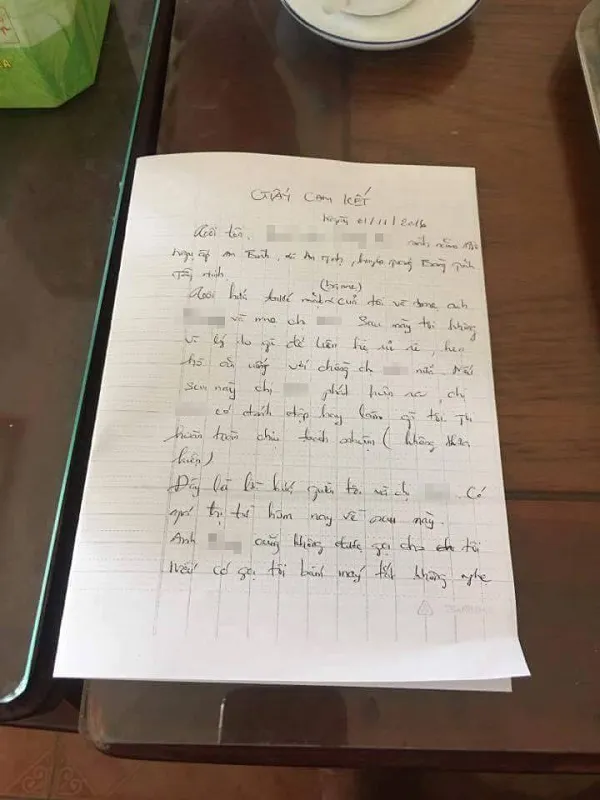 GIẤY CAM KẾT
Ngày 01/11/2018
tôi tên. sinh năm
Ngụ ấp An Bình, xã An Tịnh, huyện Trảng Bàng tỉnh
Tây Ninh.
(trị mẹ)
tôi hứa trước của tôi và anh
và mẹ ch Sau này tôi không
vì lý do gì để liên hệ, rủ rê, hẹn
hò ăn uống với chồng ch nữa. Nếu
sau này chị phát hiện ra, chị
có đánh đập hay làm gì tôi
hoàn toàn chịu trách nhiệm ( không thưa
kiện)
Đây là lời hứa giữa tôi và ch . Có
giá trị từ hôm nay về sau này.
Anh cũng không được gọi cho tôi
nếu có gọi tôi bánh máy tắt không nghe